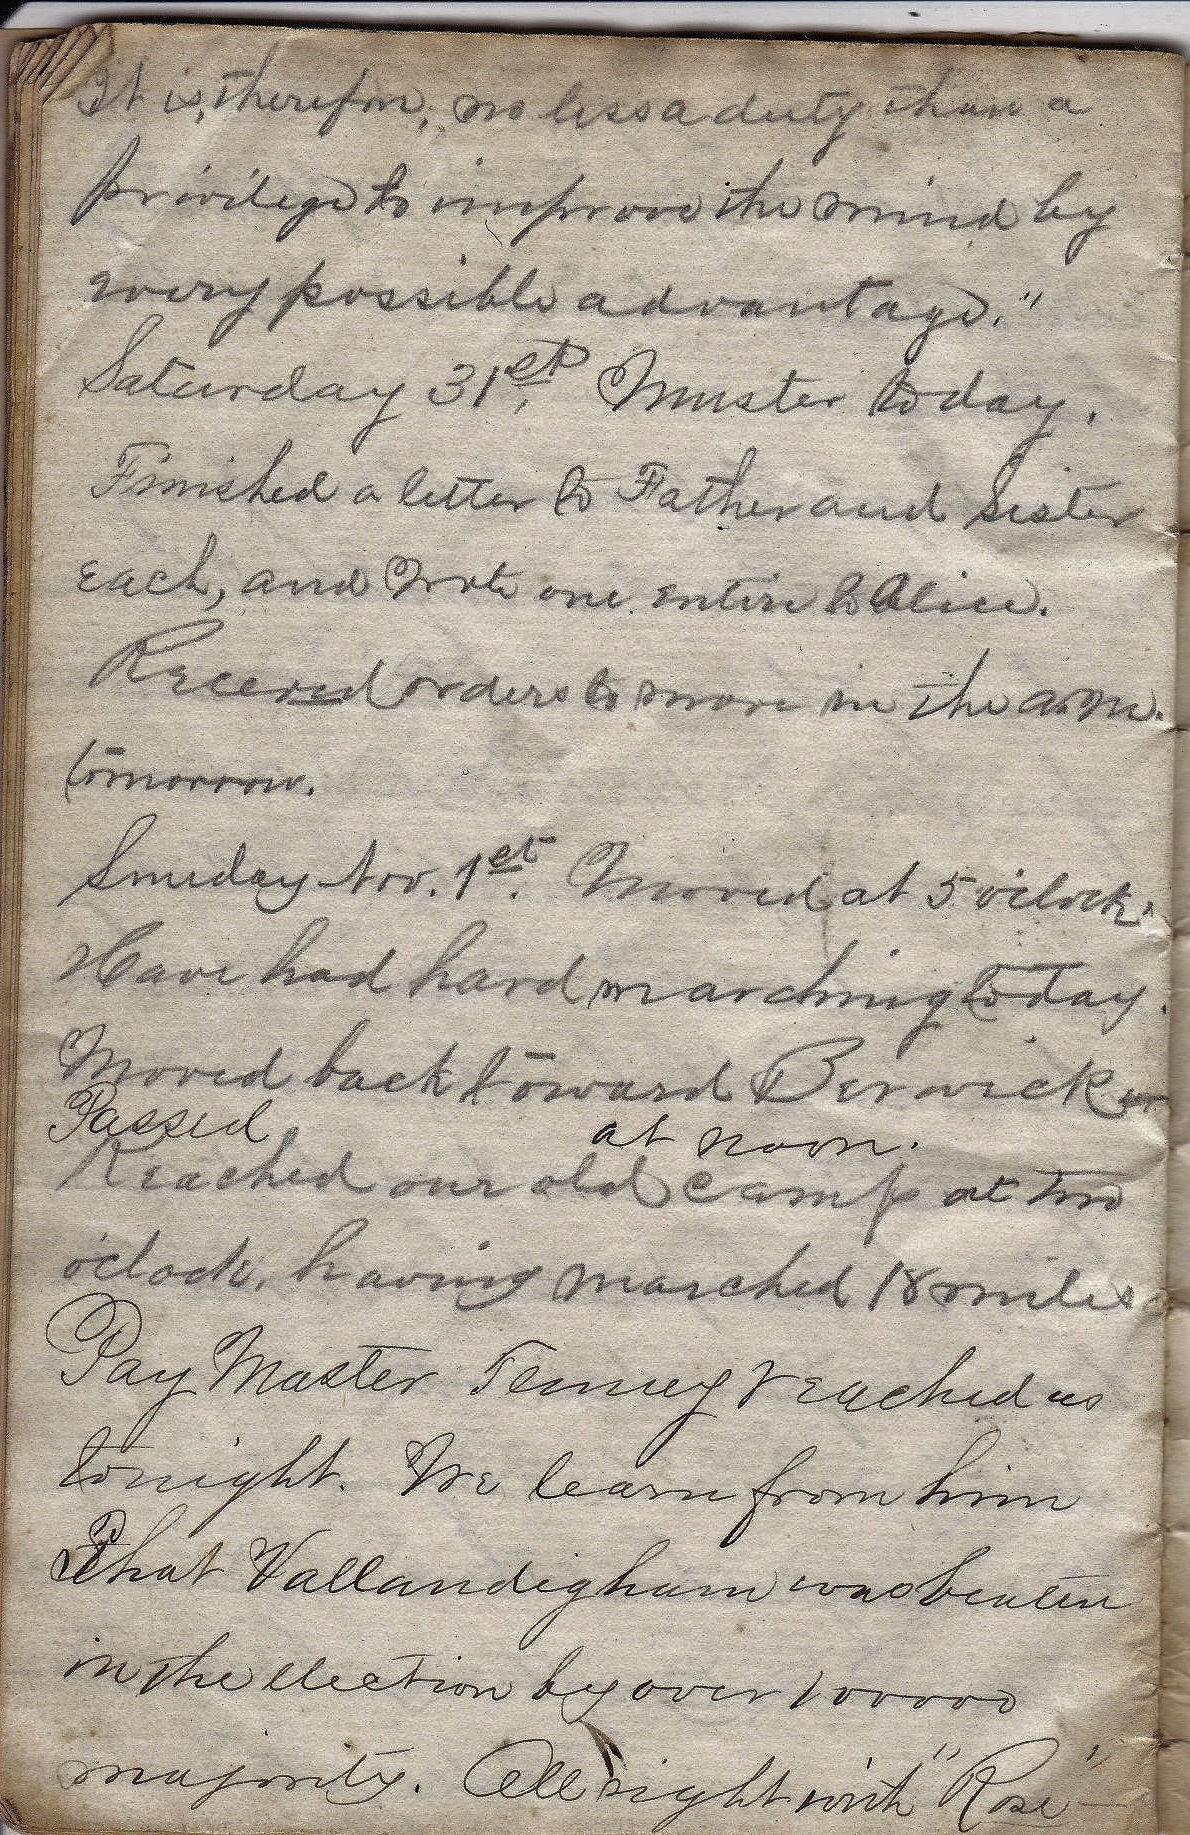 It is, therefore, no less a duty than a
privilege to improve the mind by
every possible advantage."
Saturday 31st. Muster today.
Finished a letter to Father and Sister
each, and Wrote one entire to Alice.
Received orders to move in the a.m.
tomorrow.
Sunday Nov. 1st. Moved at 5 o'clock.
Have had hard marching today.
Moved back toward Berwick
Passed at noon.
Reached our old camp at two
o'clock, having marched 18 miles
Pay Master Tenney reached us
tonight. We learn from him
That Vallandigham was beaten
in the election by over 100000
majority. All right with "Rose"